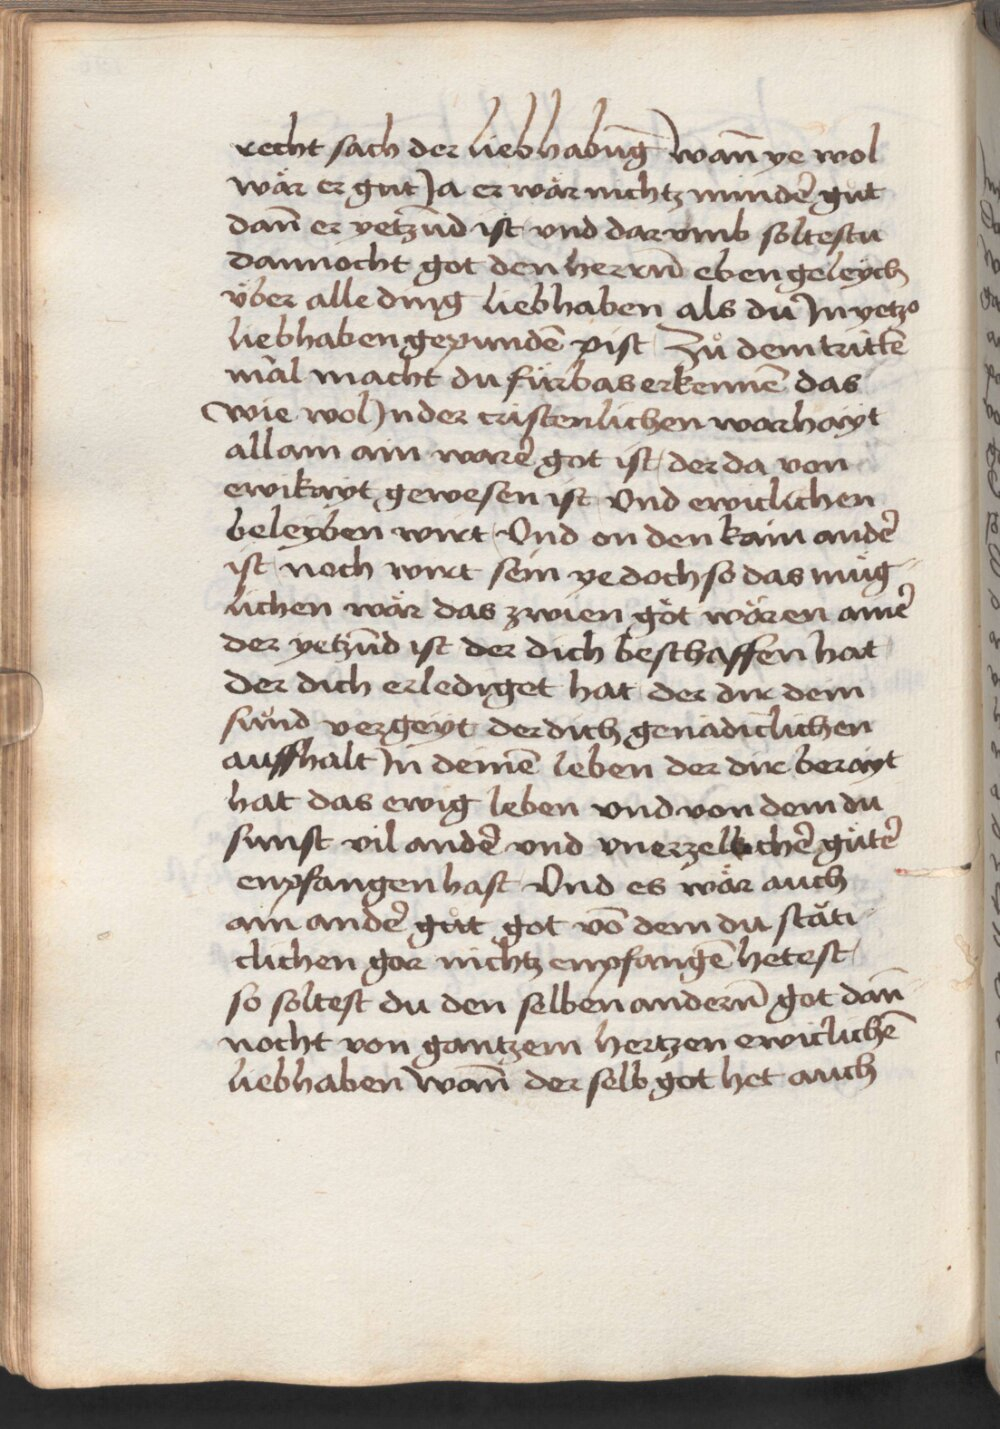 recht sach der liebhabūg Wan̄ ye wol
wär er gut Ja er wär nichtz minder̄ gůt
dan̄ er yetzūd ist vnd dar vmb soltestu
dannocht got den herrn̄ eben geleych
v̈ber alle ding liebhaben als du Jn yetzo
liebhaben gepundē pist Zů dem trittē
mal macht du fürbas erkennē das
wie wol Jn der cristenlichen warhayt
allain ain warer̄ got ist der da von
ewikayt gewesen ist Vnd ewiclichen
beleyben wirt Vnd on den kain ander̄
ist noch wirt sein ye doch so das müg-
lichen wär das zwien göt wären ainer̄
der yetzūd ist der dich beschaffen hat
der dich erlediget hat der dir dein
sünd vergeyt der dich genädiclichen
auffhalt Jn deinē leben der dir berayt
hat das ewig leben vnd von dem du
sunst vil ander̄ vnd vnerzellicher̄ güter̄
enpfangen hast Vnd es wär auch
ain ander̄ gůt got vō dem du stäti-
clichen gar nichtz enpfangē hetest
so soltest du den selben andern̄ got dan̄
nocht von gantzem hertzen ewiclichē
liebhaben Wan̄ der selb got het auch